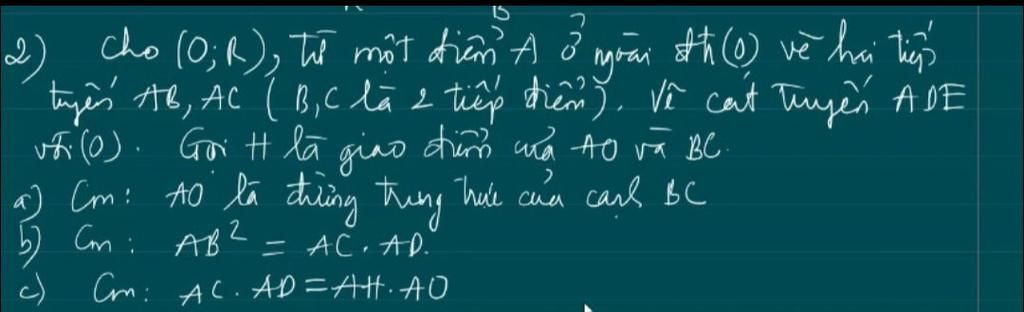 2) Cho (O;R), từ một điểm A ở ngoài đth (O) vẽ hai tiếp
tuyến AB, AC (B, C là 2 tiếp điểm). Vẽ cát tuyến ADE
với (O). Gọi H là giao điểm của AO và BC.
a) Cm: AO là đường trung trực của cạnh BC
b) Cm: AB² = AC.AD.
c) Cm: AC.AD = AH.AO